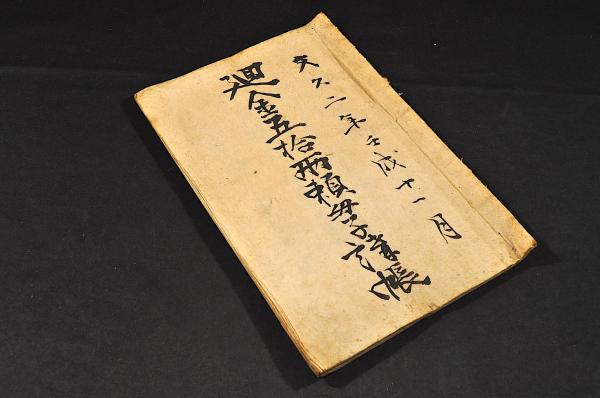 文久二年壬戌十一月
廻金五拾両頼母子講帳